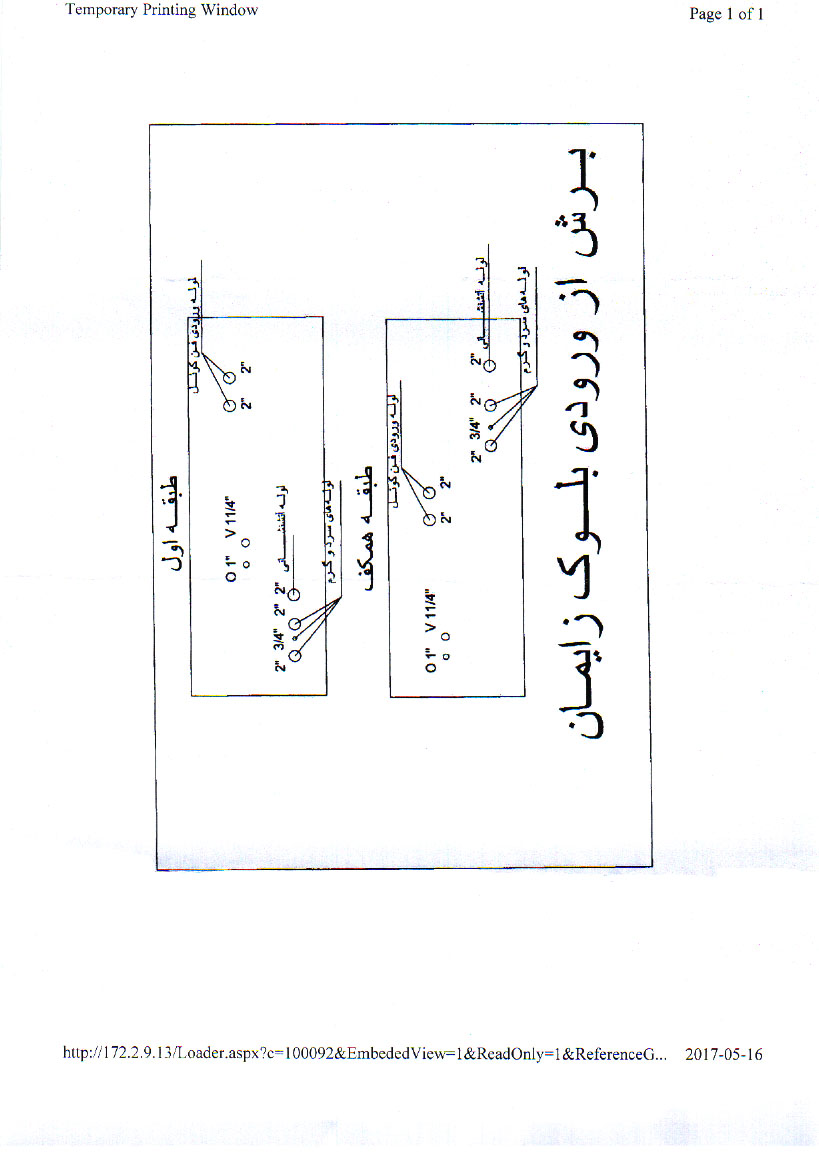 Temporary Printing Window
Page 1 of 1
طبقه اول
لوله ورودی فن کوئل
2" 2"
O 1" V 11/4"
لوله آتشنشانی
2" 3/4" 2" 2"
لوله‌های سرد و گرم
طبقه همکف
لوله ورودی فن کوئل
2" 2"
O 1" V 11/4"
لوله آتشنشانی
2" 3/4" 2" 2"
لوله‌های سرد و گرم
برش از ورودی بلوک زایمان
http://172.2.9.13/Loader.aspx?c=100092&EmbededView=1&ReadOnly=1&ReferenceG...
2017-05-16